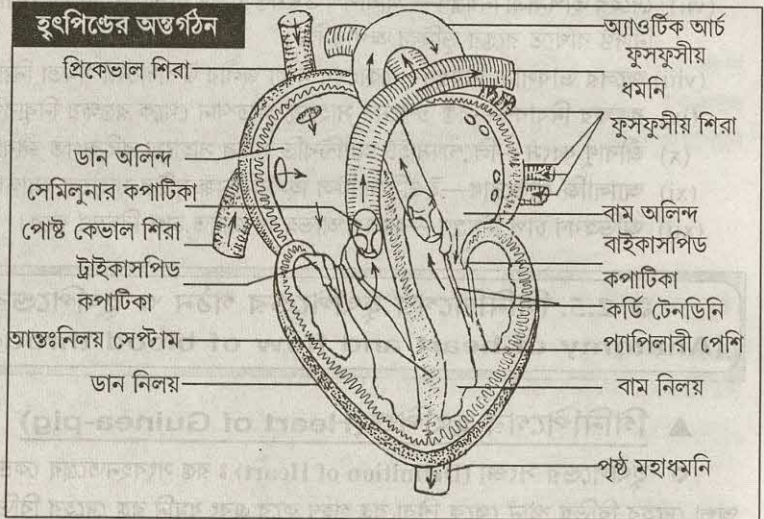 হৃৎপিন্ডের অন্তর্গঠন
প্রিকেভাল শিরা
ডান অলিন্দ
সেমিলুনার কপাটিকা
পোষ্ট কেভাল শিরা
ট্রাইকাসপিড
কপাটিকা
আন্তঃনিলয় সেপ্টাম
ডান নিলয়
অ্যাওর্টিক আর্চ
ফুসফুসীয়
ধমনি
ফুসফুসীয় শিরা
বাম অলিন্দ
বাইকাসপিড
কপাটিকা
কর্ডি টেনডিনি
প্যাপিলারী পেশি
বাম নিলয়
পৃষ্ঠ মহাধমনি